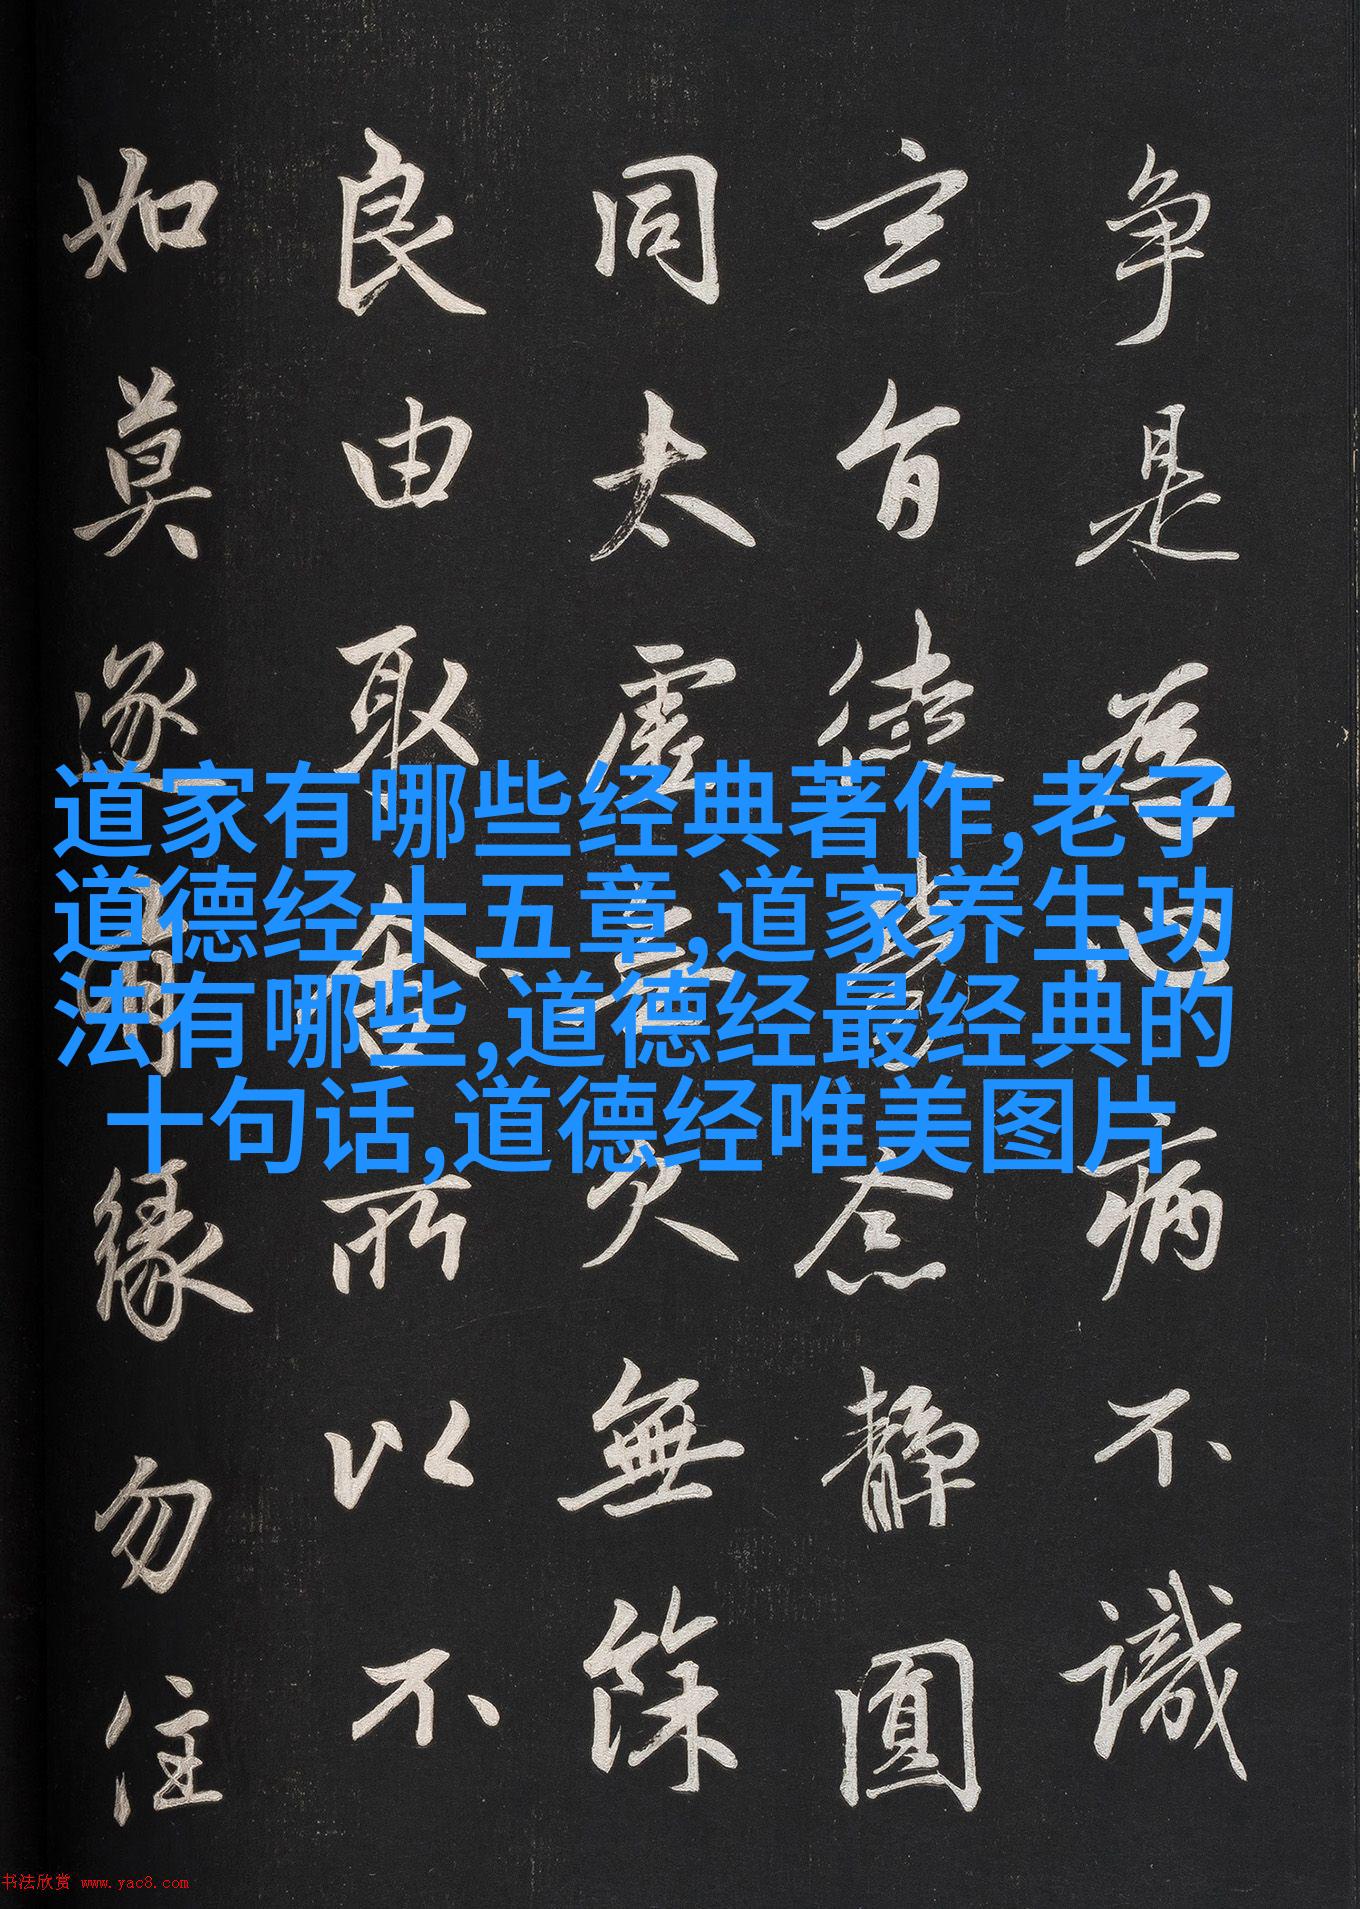 争是為心病不識
玄旨徒勞念靜圓
同太虛無欠無餘
良由取舍所以不
如莫逐有緣勿住
道家有哪些经典著作,老子
道德经十五章,道家养生功
法有哪些,道德经最经典的
十句话,道德经唯美图片
书法欣赏 www.yac8.com